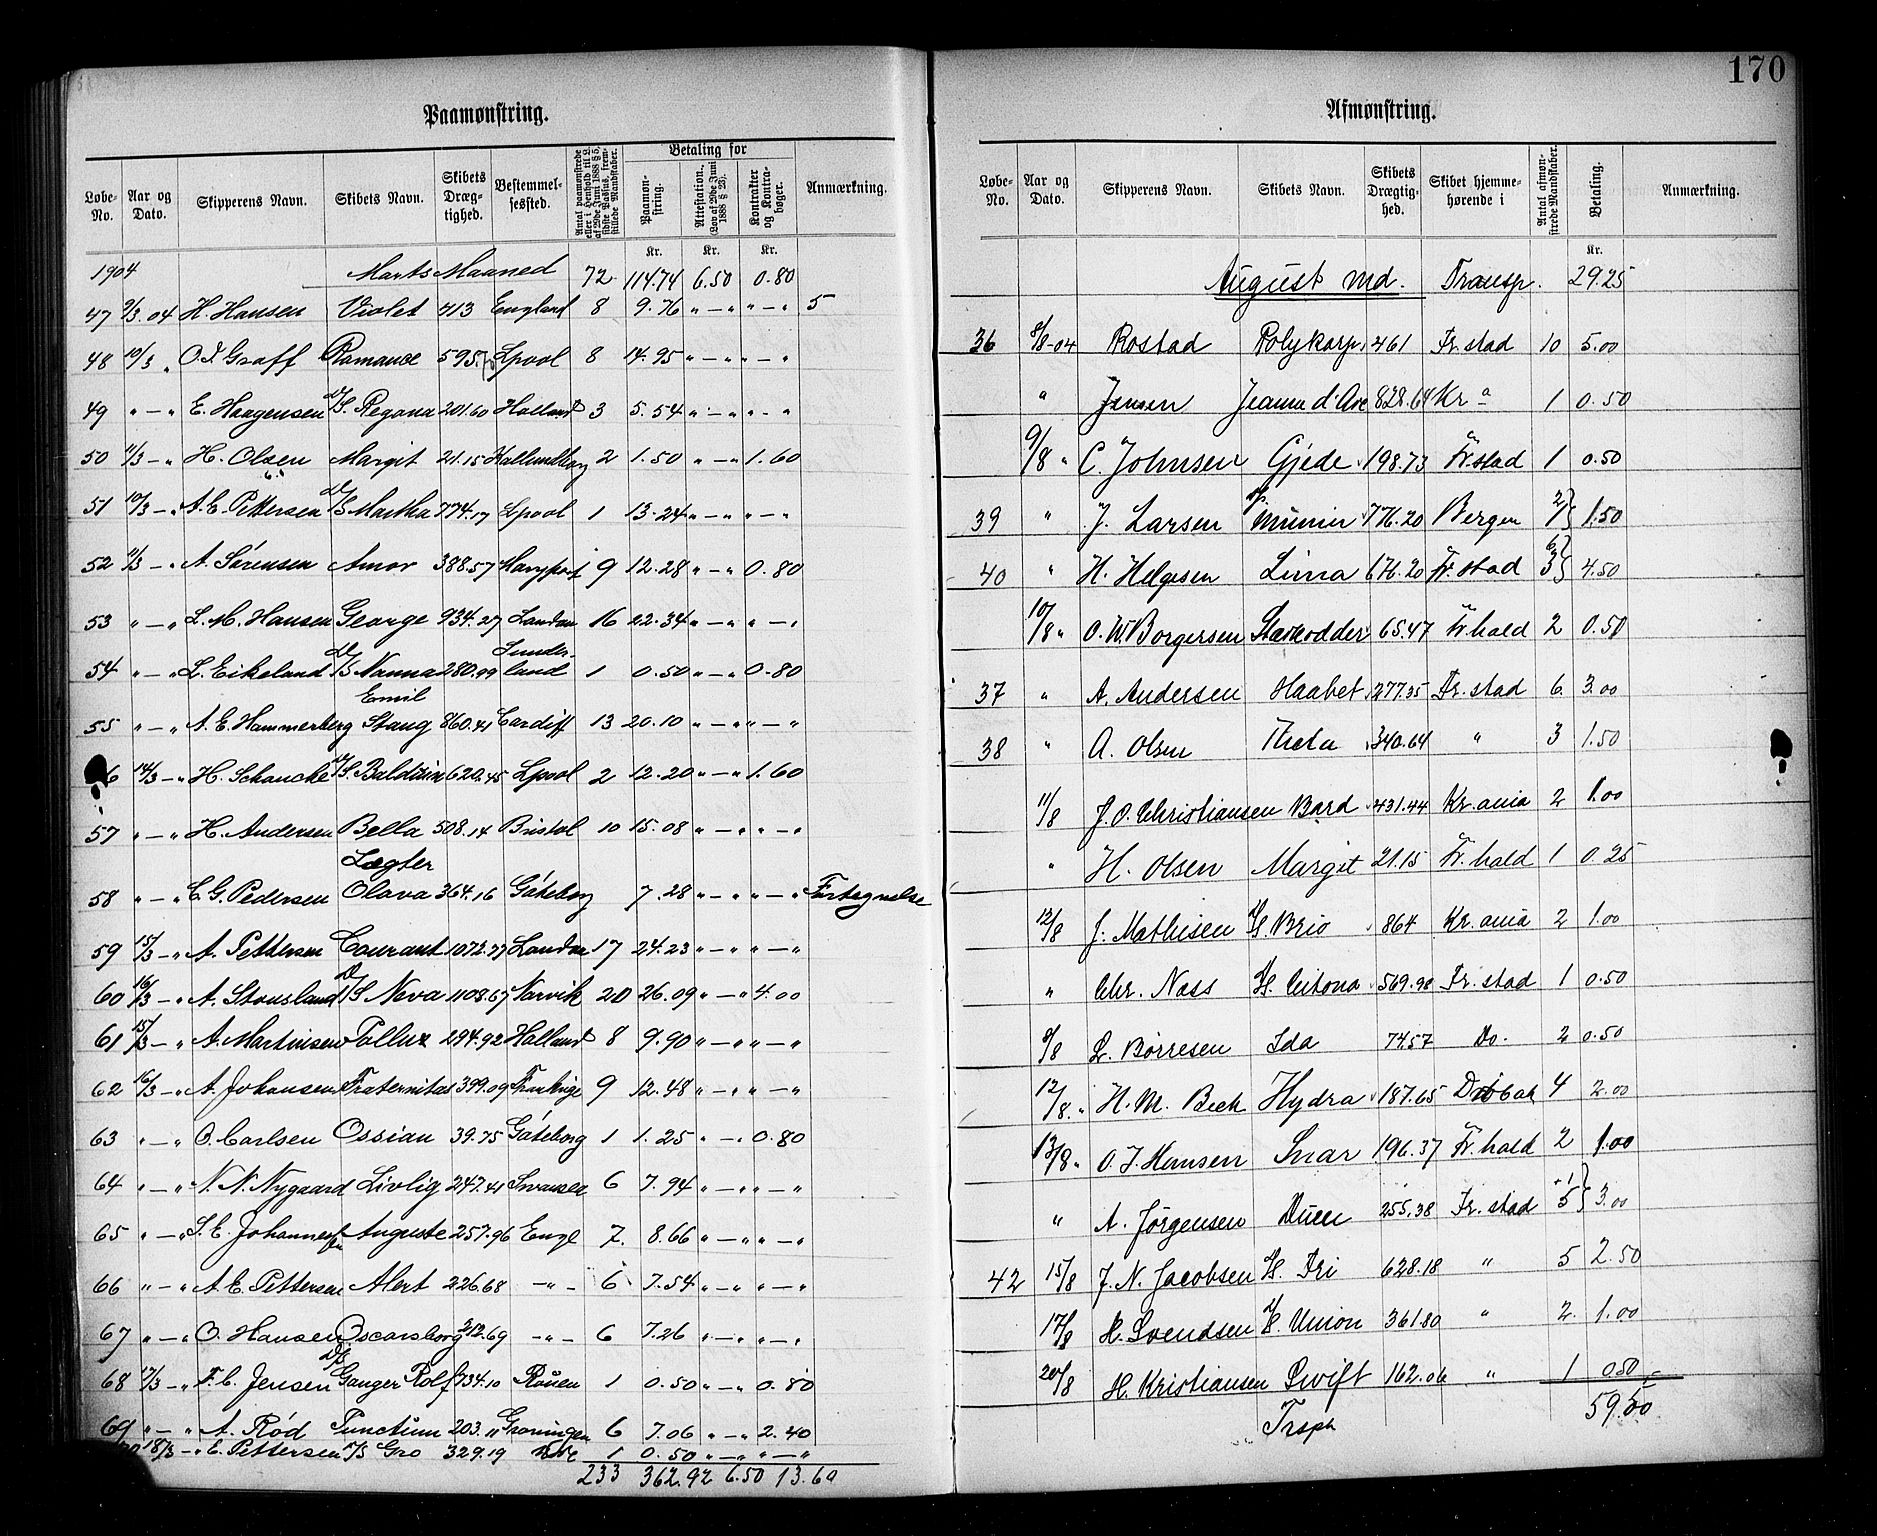 170
Paamønstring.
Løbe-No. Aar og Dato. Skipperens Navn. Skibets Navn. Skibets Dræg-tighed. Bestemmel-sessted. Antal paamønstrede eller i Henhold til L. af 29de Juni 1888 § 5, sidste Passus, frem-stillede Mandskaber. Betaling for Paamøn-string. Attestation. (Lov af 29de Juni 1888 § 23). Kontrakter og Kontra-bøger. Anmærkning.
Kr. Kr. Kr.
1904 Marts Maaned 72 114.74 6.50 0.80
47 9/3.04 H. Hansen Violet 413 England 8 9.76 " — " " — " 5
48 10/3 " O. F. Graff Romance 595. Lpool 8 14.95 " — " " — "
49 " — " E. Haagensen D/S. Regona 201.60 Holland 3 5.54 " — " " — "
50 11/3 — " H. Olsen Margit 21.15 Kallundborg 2 1.50 " — " 1.60
51 10/3 — " A. E. Pettersen D/S Martha 774.17 Lpool 1 13.24 " — " " — "
52 11/3 — " A. Sørensen Amor 388.57 Maryport 9 12.28 " — " 0.80
53 " — " L. M. Hansen George 934.27 London 16 22.34 " — " " — "
54 " — " L. Eikeland D/S Nanna 280.99 Sunder-land 1 0.50 " — " 0.80
55 " — " A. E. Hammerberg Emil Stang 860.41 Cardiff 13 20.10 " — " " — "
6 14/3 — " H. Schancke D/S. Balduin 620.45 Lpool 2 12.20 " — " 1.60
57 " — " H. Andersen Bella 508.14 Bristol 10 15.08 " — " " — "
58 " — " C. G. Pedersen Lægter Olava 364.16 Göteborg 7.28 " — " " — " Fortegnelse
59 15/3 — " A. Pettersen Courant 1072.77 London 17 24.23 " — " " — "
60 16/3 — " A. Stousland D/S Neva 1108.67 Narvik 20 26.09 " — " 4.00
61 15/3 — " A. Martinsen Pollux 294.92 Holland 8 9.90 " — " " — "
62 16/3 — " A. Johansen Fraternitas 399.09 Frankrige 9 12.48 " — " " — "
63 " — " O. Carlsen Ossian 39.75 Göteborg 1 1.25 " — " 0.80
64 " — " N. N. Nygaard Livlig 247.41 Swansea 6 7.94 " — " " — "
65 " — " S. E. Johannesen Auguste 257.96 Engl 7. 8.66 " — " " — "
66 " — " A. E. Pettersen Alert 226.68 — " — 6 7.54 " — " " — "
67 " — " O. Hansen Oscarsborg 212.69 — " — 6 7.26 " — " " — "
68 17/3 — " F. C. Jensen D/S Ganger Rolf 734.10 Rouen 1 0.50 " — " 0.80
69 " — " A. Rød Punctum 203.11 Groningen 6 7.06 " — " 2.40
18/3 — " E. Pettersen D/S Gro 329.19 1 0.50 " — " " — "
233 362.92 6.50 13.60
Afmønstring.
Løbe-No. Aar og Dato. Skipperens Navn. Skibets Navn. Skibets Drægtig-hed. Skibet hjemme-hørende i Antal afmøn-strede Mandskaber. Betaling. Anmærkning.
Kr.
August Md. Transp. 29.25
36 8/8-04 Rostad Polykarp 461 Fr.stad 10 5.00
" Jensen Jeanne d'Arc 828.64 Kr a 1 0.50
9/8 " C. Johnsen Gjede 198.73 Fr.stad 1 0.50
39 " J. Larsen Munin 776.20 Bergen 2/1 } 1.50
40 " H. Helgesen Lima 676.20 Fr.stad 6/3 } 4.50
10/8 " O. W. Borgersen Stærkodder 65.47 Fr.hald 2 0.50
37 " A. Andersen Haabet 277.35 Fr.stad 6. 3.00
38 " A. Olsen Theta 340.64 " 3 1.50
11/8 J. O. Christiansen Bard 431.44 Kr.ania 2 1.00
" H. Olsen Margit 21.15 Fr.hald 1 0.25
12/8 J. Mathisen D/S. Brio 864 Kr.ania 2 1.00
" Chr. Nass D/S. 569.98 Fr.stad 1 0.50
9/8 L. Børresen Ida 74.57 Do. 2 0.50
12/8. " H. M. Bech Hydra 187.65 Drøbak 4 2.00
13/8 " O. J. Hansen Snar 196.37 Fr.hald 2 1.00
" A. Jørgensen Duen 255.38 Fr.stad 1/5 } 3.00
42 15/8 J. N. Jacobsen D/S. Fri 628.18 " 5 2.50
17/8 H. Svendsen D/S. Union 361.80 " 2. 1.00
20/8 H. Kristiansen Swift 162.06 " 1 0.50
Trsp 59.50